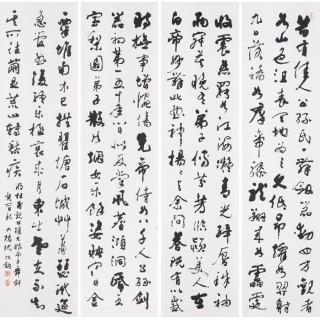 昔有佳人公孫氏一舞劍器動四方觀者
如山色沮喪天地為之久低昂㸌如羿射
九日落矯如群帝驂龍翔來如雷霆
收震怒罷如江海凝清光絳唇珠袖
兩寂寞晚有弟子傳芬芳臨潁美人在
白帝妙舞此曲神揚揚與余問答既有以感
時撫事增惋傷先帝侍女八千人公孫劍
器初第一五十年間似反掌風塵澒洞昏王
室梨園弟子散如煙女樂餘姿映寒日金
粟堆南木已拱瞿唐石城草蕭瑟玳筵
急管曲復終樂極哀來月東出老夫不知
其所往足繭荒山轉愁疾